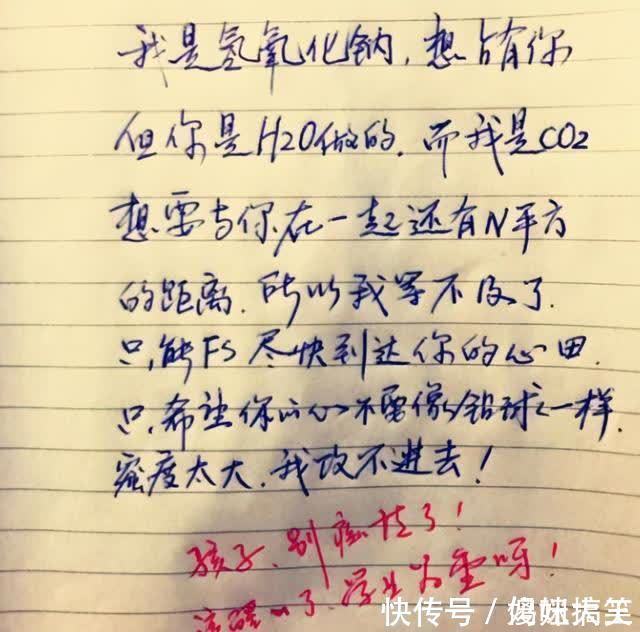 我是氢氧化钠，想占有你
但你是H2O做的.而我是CO2
想要与你在一起还有N平方
的距离.所以我等不及了.
只能FS尽快到达你的心田.
只希望你的心不要像铅球一样.
密度太大.我攻不进去!
孩子.别疯狂了!
清醒 了.学业为重呀!
快传号/媳妹搞笑